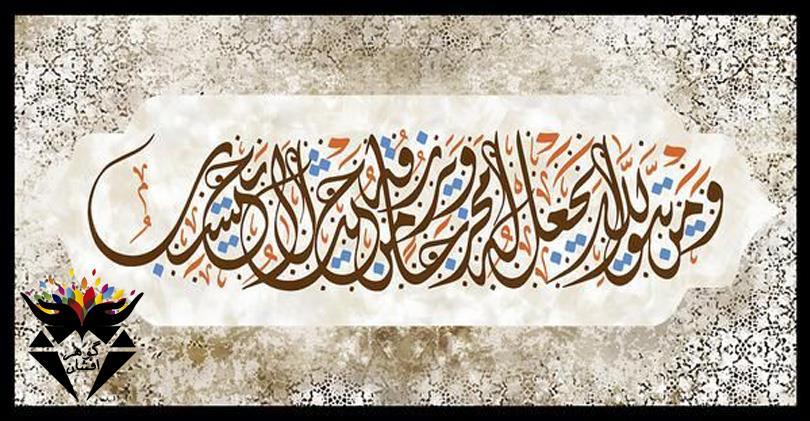 ومن يتق الله يجعل له مخرجا ويرزقه من حيث لا يحتسب
گوهر
افشان